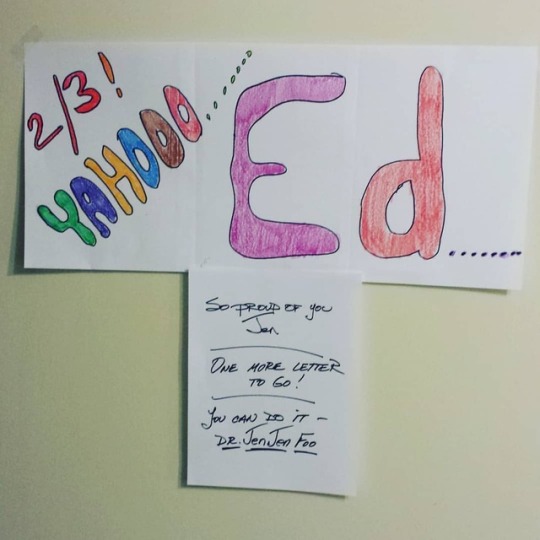 2/3!
YAHOOO.......
Ed.......
SO PROUD OF YOU
Jen
ONE MORE LETTER
TO GO!
YOU CAN DO IT -
DR. JenJen Foo